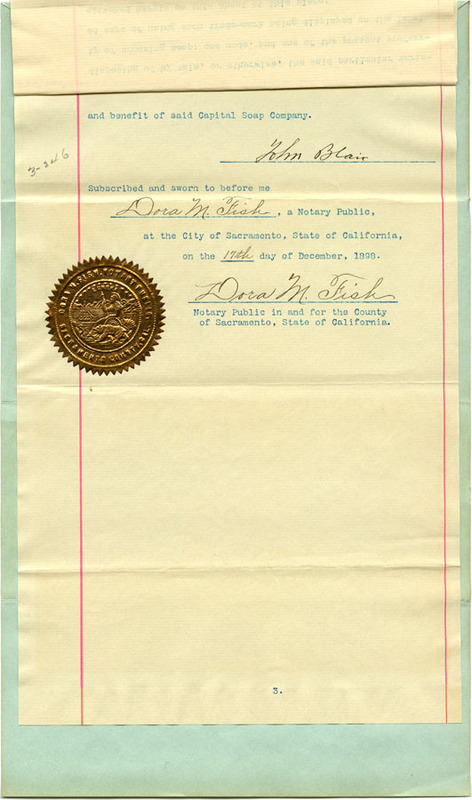 and benefit of said Capital Soap Company.
John Blair
3-246
Subscribed and sworn to before me
Dora M. Fish, a Notary Public,
at the City of Sacramento, State of California,
on the 17th day of December, 1898.
Dora M. Fish
Notary Public in and for the County
of Sacramento, State of California.
3.